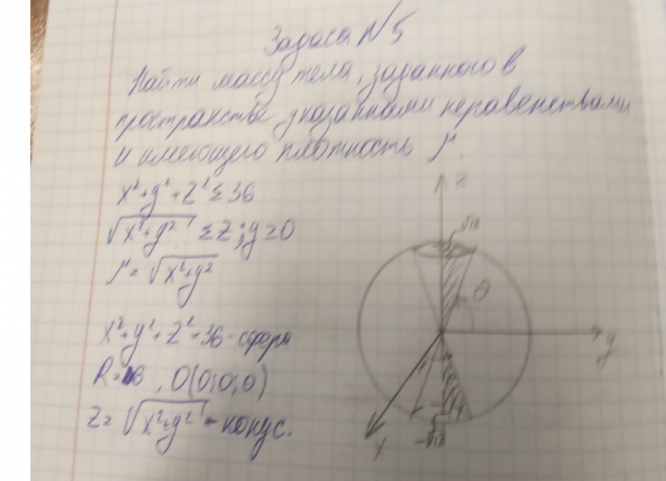 Задача №5
Найти массу тела, заданного в
пространстве указанными неравенствами
и имеющего плотность μ.
x²+y²+z² ≤ 36
√(x²+y²) ≤ z; y ≥ 0
μ = √(x²+y²)
x²+y²+z²=36 - сфера
R=6, O(0;0;0)
z = √(x²+y²) - конус.
z
√18
θ
y
x
-√18